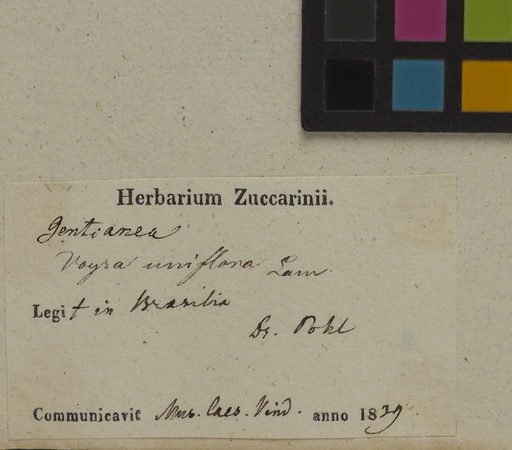 Herbarium Zuccarinii.
Gentianea
Voyra uniflora Lam.
Legit in Brasilia
Dr. Pohl
Communicavit Mus. Caes. Vind. anno 1839